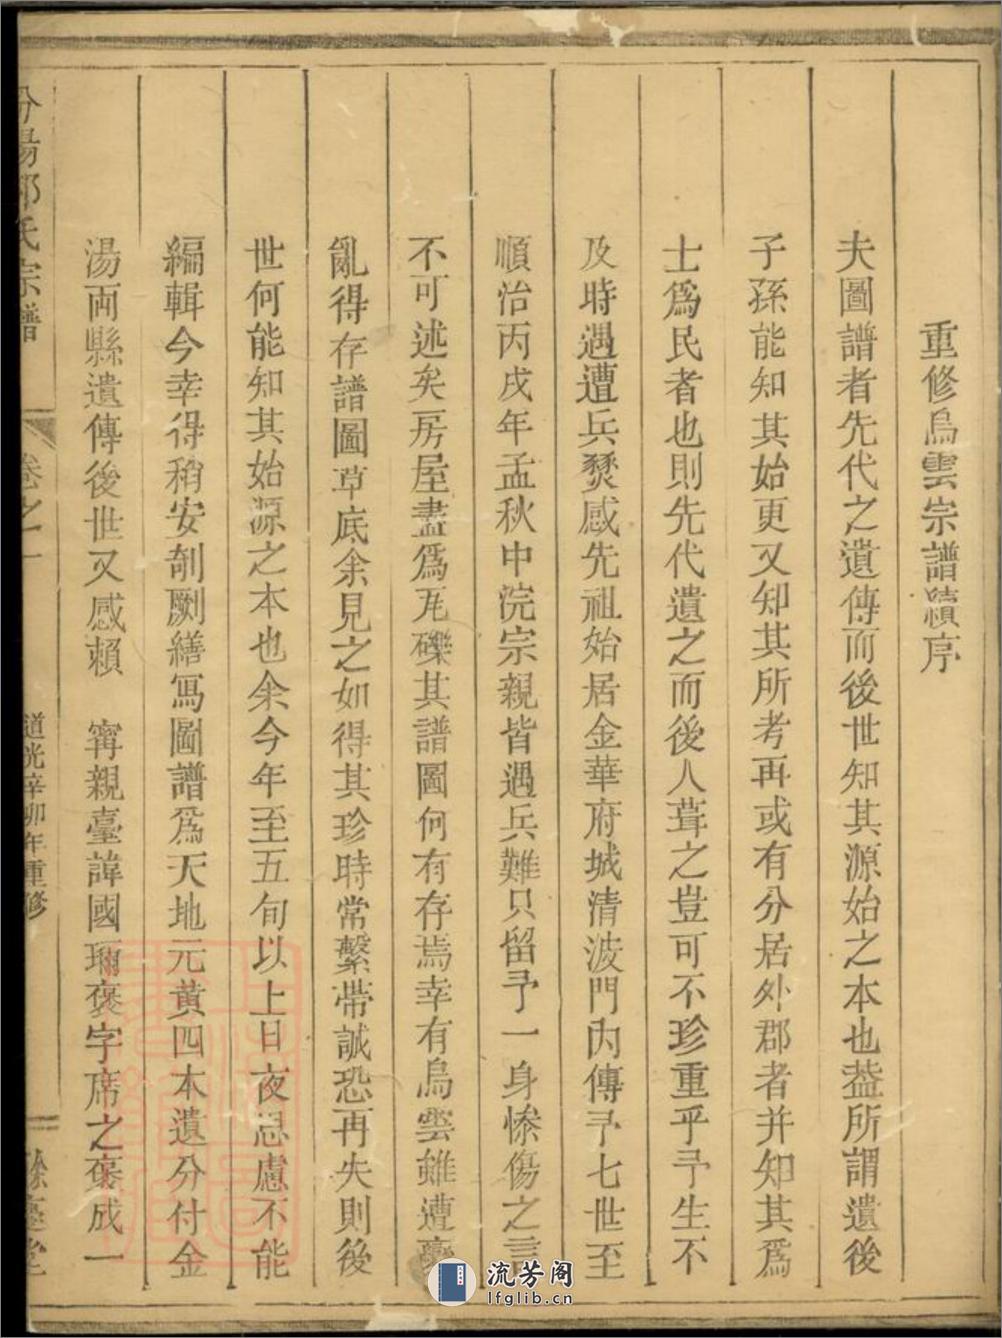 重修烏雲宗譜續序
夫圖譜者先代之遺傳而後世知其源始之本也葢所謂遺後
子孫能知其始更又知其所考再或有分居外郡者并知其爲
士爲民者也則先代遺之而後人葺之豈可不珍重乎予生不
及時遇遭兵燹感先祖始居金華府城清波門内傳予七世至
順治丙戌年孟秋中浣宗親皆遇兵難只留予一身慘傷之言
不可述矣房屋盡爲瓦礫其譜圖何有存焉幸有烏雲雖遭
亂得存譜圖草底余見之如得其珍時常繫帶誠恐再失則後
世何能知其始源之本也余今年至五旬以上日夜思慮不能
編輯今幸得稍安剞劂繕冩圖譜爲天地元黃四本遺分付金
湯両縣遺傳後世又感賴　甯親臺諱國璽褒字席之褒成一
汾陽郭氏宗譜
卷之一
道光辛卯年重修
餘慶堂
流芳阁
lfglib.cn